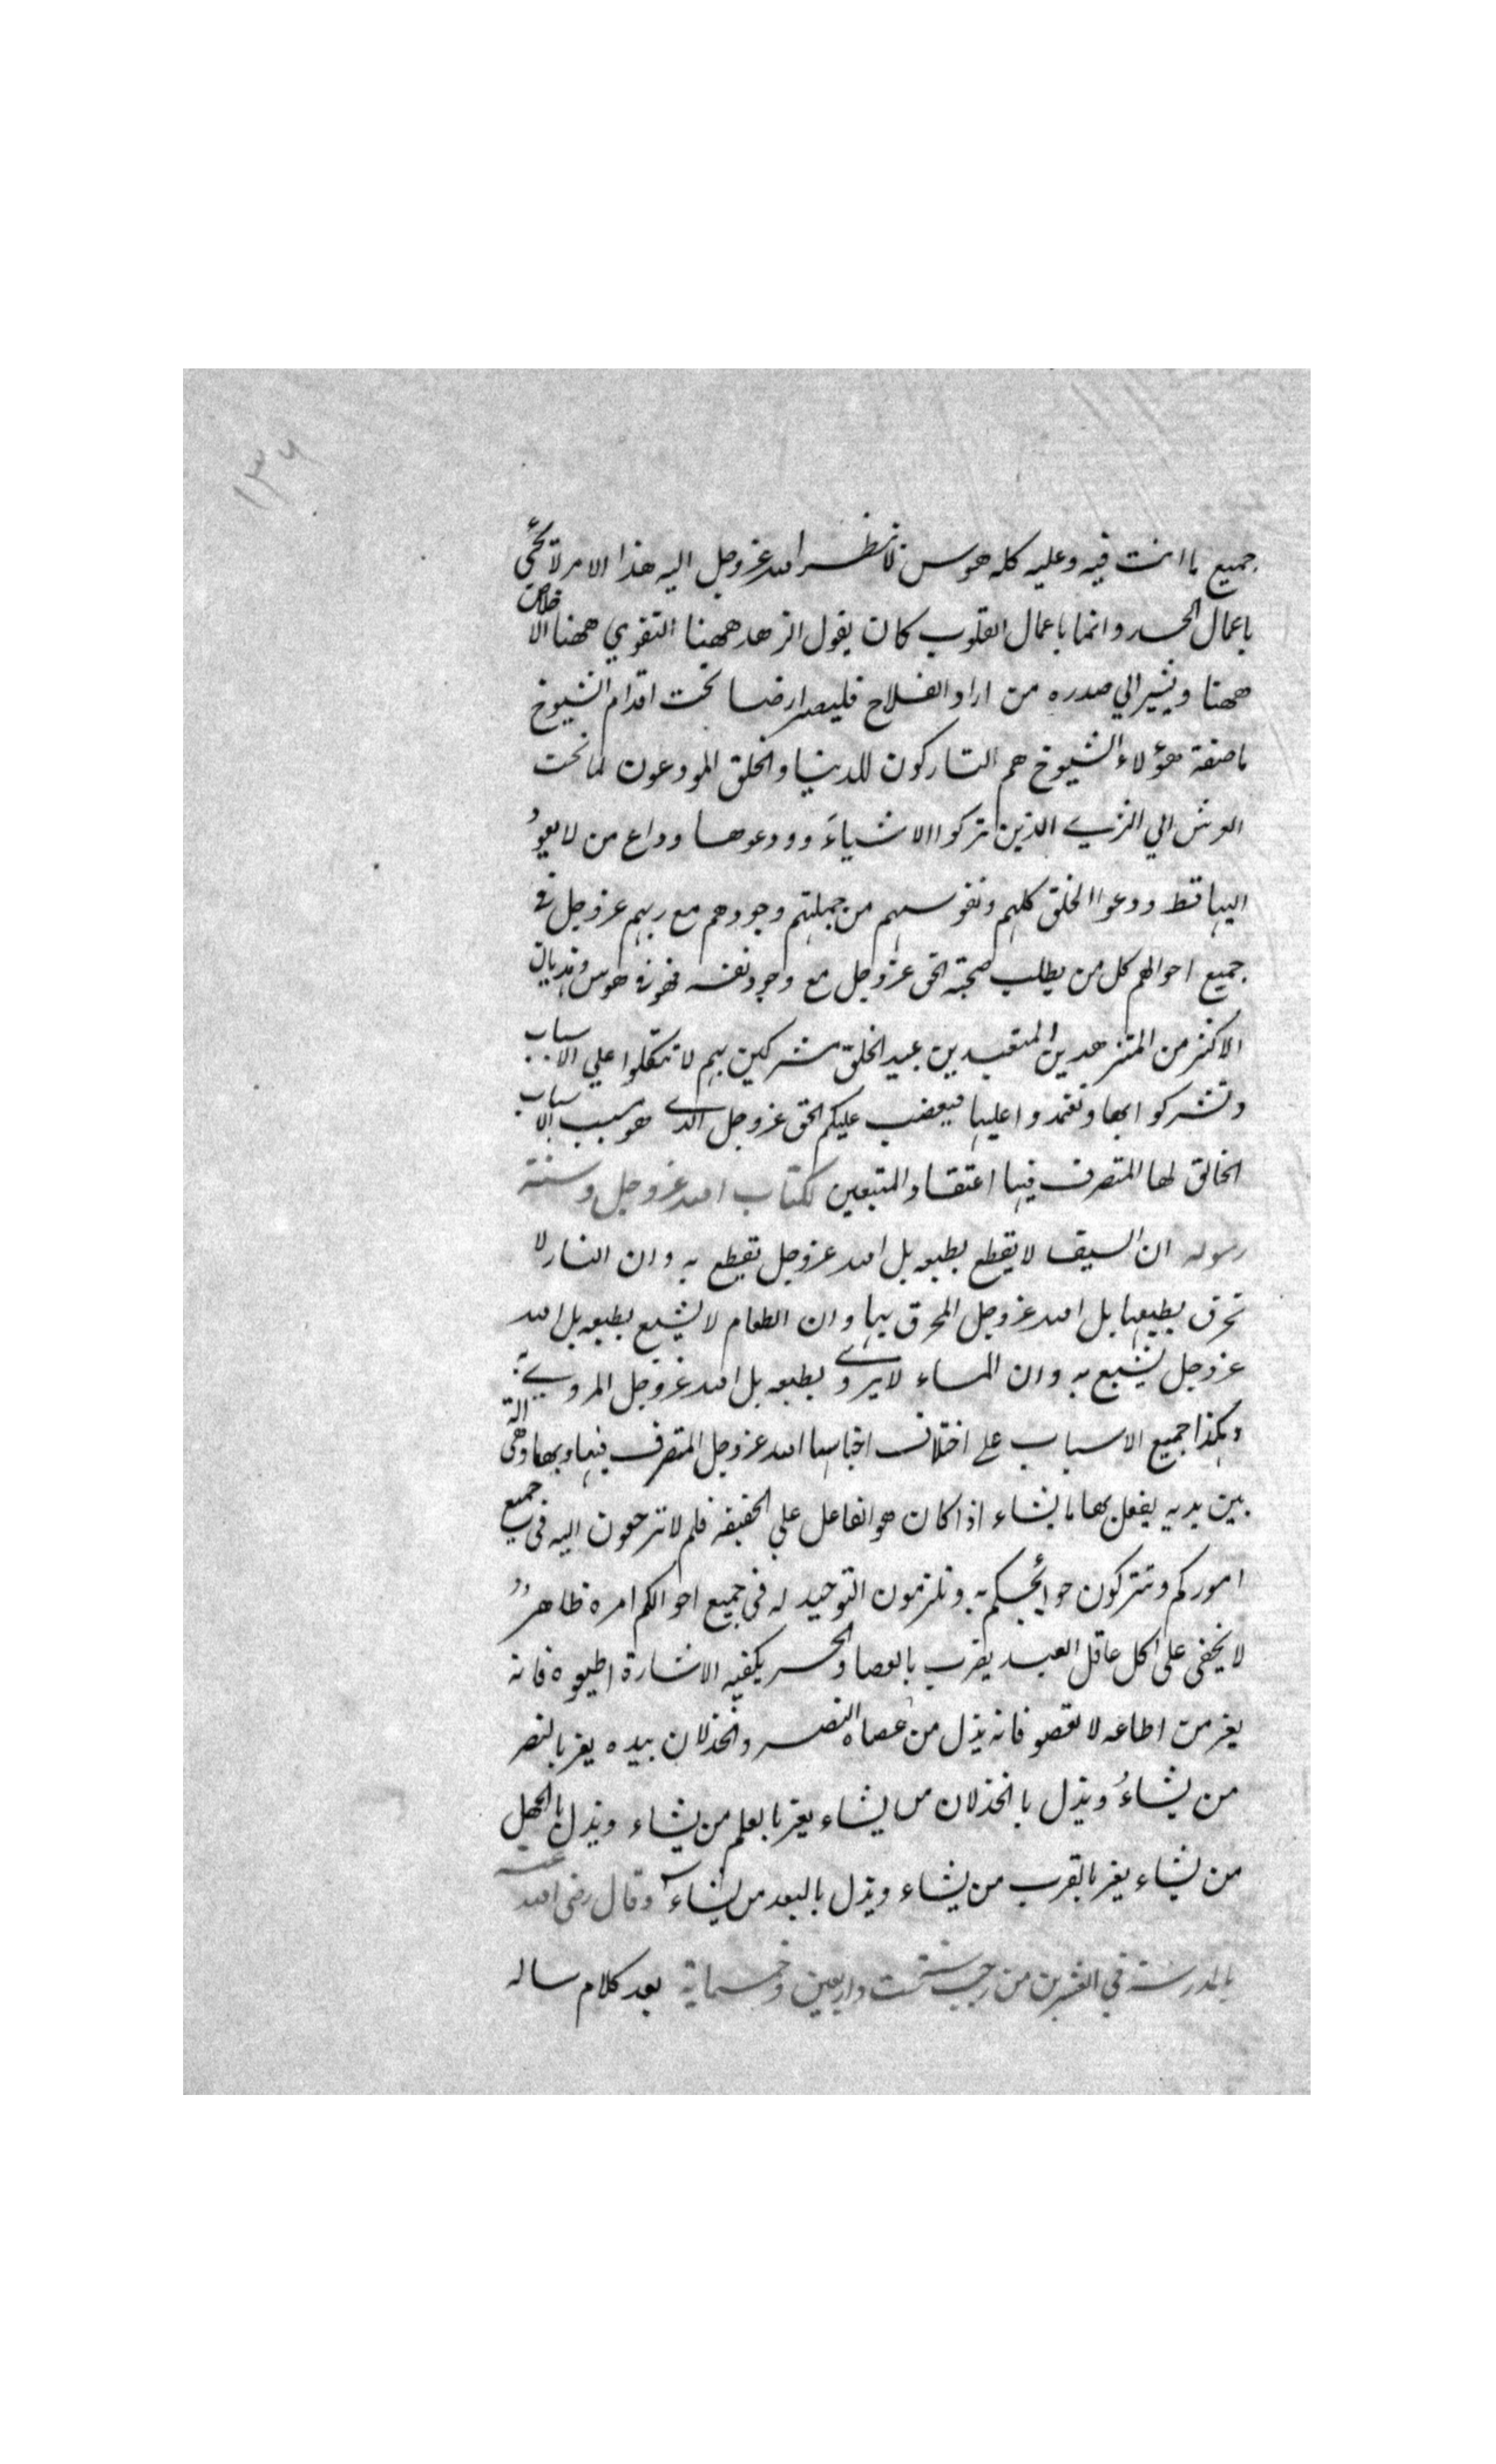 ١٣٦
جميع ما انت فيه وعليه كله هوس لا ينظر الله عز وجل اليه هذا الامر لا يجيء
باعمال الجسد وانما باعمال القلوب كان يقول الزهد ههنا التقوي ههنا الاخلاص
ههنا ويشير الي صدره من اراد الفلاح فليصر ارضا تحت اقدام الشيوخ
ما صفة هؤلاء الشيوخ هم التاركون للدنيا والخلق المودعون لما تحت
العرش الي الثري الذين تركوا الاشياء وودعوها وداع من لا يعود
اليها قط ودعوا الخلق كلهم ونفوسهم من جملتهم وجودهم مع ربهم عز وجل في
جميع احوالهم كل من يطلب صحبة الحق عز وجل مع وجود نفسه فهو في هوس وهذيان
الاكثر من المتزهدين المتعبدين عبيد الخلق مشركين بهم لا تتكلوا علي الاسباب
وتشركوا بها وتعتمدوا عليها فيغضب عليكم الحق عز وجل الذي هو مسبب الاسباب
الخالق لها المتصرف فيها اعتقاد المتبعين لكتاب الله عز وجل وسنة
رسوله ان السيف لا يقطع بطبعه بل الله عز وجل يقطع به وان النار لا
تحرق بطبعها بل الله عز وجل المحرق بها وان الطعام لا يشبع بطبعه بل الله
عز وجل يشبع به وان الماء لا يروي بطبعه بل الله عز وجل المروي به
وهكذا جميع الاسباب علي اختلاف اجناسها الله عز وجل المتصرف فيها وبها وهي الة
بين يديه يفعل بها ما يشاء اذا كان هو الفاعل علي الحقيقة فلم لا ترجعون اليه في جميع
اموركم وتتركون حوائجكم به وتلزمون التوحيد له في جميع احوالكم امره ظاهر
لا يخفى على كل عاقل العبد يضرب بالعصا والحر يكفيه الاشارة اطيعوه فانه
يعز من اطاعه لا تعصوه فانه يذل من عصاه النصر والخذلان بيده يعز بالنصر
من يشاء ويذل بالخذلان من يشاء يعز بالعلم من يشاء ويذل بالجهل
من يشاء يعز بالقرب من يشاء ويذل بالبعد من يشاء وقال رضى الله عنه
بالمدرسة في العشرين من رجب سنة ست واربعين وخمسماية بعد كلام ساله